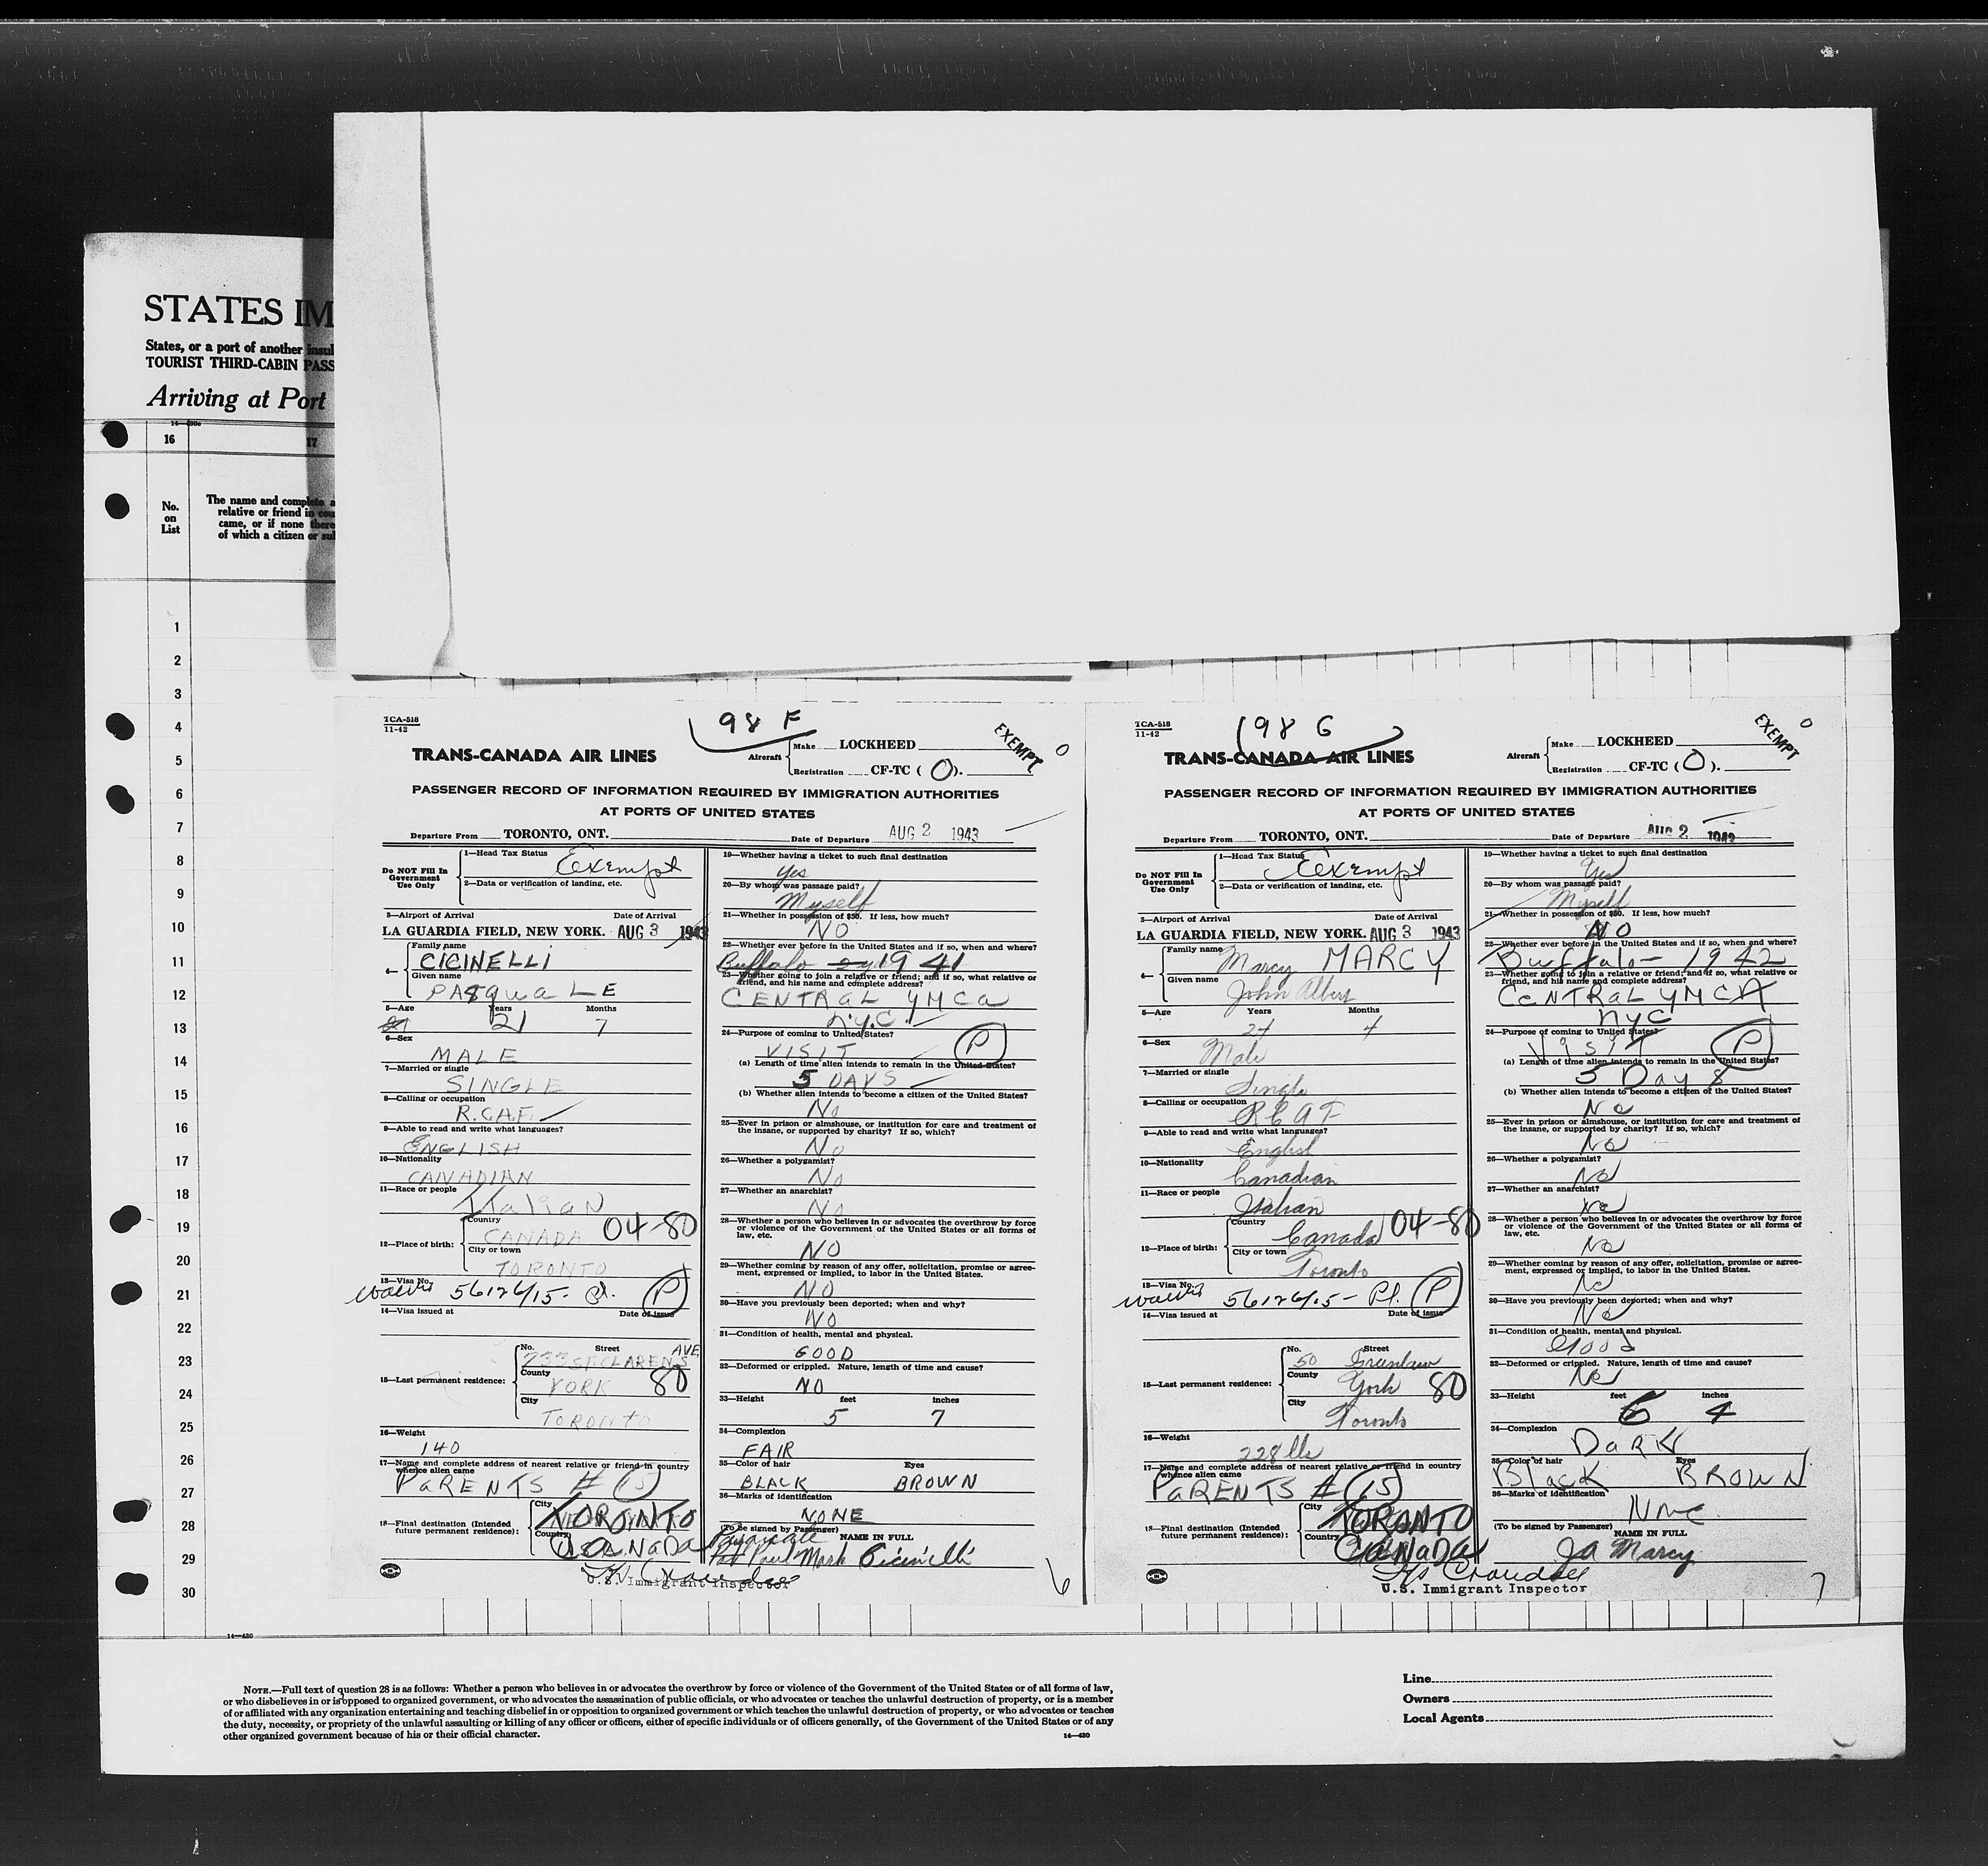 STATES IM
States, or a port of another insul
TOURIST THIRD-CABIN PASS
Arriving at Port
16 17
No. on List
The name and complete a
relative or friend in cou
came, or if none there
of which a citizen or sul
1
2
3
4
5
6
7
8
9
10
11
12
13
14
15
16
17
18
19
20
21
22
23
24
25
26
27
28
29
30
TCA-518
11-42
98 F
EXEMPT
0
TRANS-CANADA AIR LINES
Aircraft
Make LOCKHEED
Registration CF-TC (O).
PASSENGER RECORD OF INFORMATION REQUIRED BY IMMIGRATION AUTHORITIES
AT PORTS OF UNITED STATES
Departure From TORONTO, ONT. Date of Departure AUG 2 1943
Do NOT Fill In Government Use Only
1—Head Tax Status Exempt
2—Data or verification of landing, etc.
3—Airport of Arrival Date of Arrival
LA GUARDIA FIELD, NEW YORK. AUG 3 1943
4— Family name
CICINELLI
Given name
PASQUALE
5—Age Years Months
21 7
6—Sex
MALE
7—Married or single
SINGLE
8—Calling or occupation
R.C.A.F.
9—Able to read and write what languages?
ENGLISH
10—Nationality
CANADIAN
11—Race or people
Italian
12—Place of birth: Country
CANADA 04-80
City or town
TORONTO
13—Visa No.
56126/15- Pl. P
14—Visa issued at Date of issue
15—Last permanent residence: No. Street
233 ST. CLARENS AVE
County
YORK 80
City
TORONTO
16—Weight
140
17—Name and complete address of nearest relative or friend in country
whence alien came
PARENTS # 15
18—Final destination (Intended
future permanent residence):
City TORONTO
Country CANADA
19—Whether having a ticket to such final destination
Yes
20—By whom was passage paid?
Myself
21—Whether in possession of $50. If less, how much?
NO
22—Whether ever before in the United States and if so, when and where?
Buffalo 1941
23—Whether going to join a relative or friend; and if so, what relative or
friend, and his name and complete address?
CENTRAL YMCA
n.y.c.
24—Purpose of coming to United States?
VISIT P
(a) Length of time alien intends to remain in the United States?
5 DAYS
(b) Whether alien intends to become a citizen of the United States?
No
25—Ever in prison or almshouse, or institution for care and treatment of
the insane, or supported by charity? If so, which?
No
26—Whether a polygamist?
No
27—Whether an anarchist?
No
28—Whether a person who believes in or advocates the overthrow by force
or violence of the Government of the United States or all forms of
law, etc.
NO
29—Whether coming by reason of any offer, solicitation, promise or agree-
ment, expressed or implied, to labor in the United States.
NO
30—Have you previously been deported; when and why?
NO
31—Condition of health, mental and physical.
GOOD
32—Deformed or crippled. Nature, length of time and cause?
NO
33—Height feet inches
5 7
34—Complexion
FAIR
35—Color of hair Eyes
BLACK BROWN
36—Marks of identification
NONE
(To be signed by Passenger) NAME IN FULL
Paul Mark Cicinelli
U.S. Immigrant Inspector
6
TCA-518
11-42
98 G
EXEMPT
0
TRANS-CANADA AIR LINES
Aircraft
Make LOCKHEED
Registration CF-TC (O).
PASSENGER RECORD OF INFORMATION REQUIRED BY IMMIGRATION AUTHORITIES
AT PORTS OF UNITED STATES
Departure From TORONTO, ONT. Date of Departure AUG 2 1943
Do NOT Fill In Government Use Only
1—Head Tax Status Exempt
2—Data or verification of landing, etc.
3—Airport of Arrival Date of Arrival
LA GUARDIA FIELD, NEW YORK. AUG 3 1943
4— Family name
Marcy MARCY
Given name
John Albert
5—Age Years Months
24 4
6—Sex
Male
7—Married or single
Single
8—Calling or occupation
RCAF
9—Able to read and write what languages?
English
10—Nationality
Canadian
11—Race or people
Italian
12—Place of birth: Country
Canada 04-80
City or town
Toronto
13—Visa No.
56126/15- Pl. P
14—Visa issued at Date of issue
15—Last permanent residence: No. Street
50 Greenlaw
County
York 80
City
Toronto
16—Weight
228 lbs
17—Name and complete address of nearest relative or friend in country
whence alien came
PARENTS # 15
18—Final destination (Intended
future permanent residence):
City TORONTO
Country CANADA
19—Whether having a ticket to such final destination
Yes
20—By whom was passage paid?
Myself
21—Whether in possession of $50. If less, how much?
NO
22—Whether ever before in the United States and if so, when and where?
Buffalo- 1942
23—Whether going to join a relative or friend; and if so, what relative or
friend, and his name and complete address?
CENTRAL YMCA
nyc
24—Purpose of coming to United States?
Visit P
(a) Length of time alien intends to remain in the United States?
5 Days
(b) Whether alien intends to become a citizen of the United States?
No
25—Ever in prison or almshouse, or institution for care and treatment of
the insane, or supported by charity? If so, which?
No
26—Whether a polygamist?
No
27—Whether an anarchist?
No
28—Whether a person who believes in or advocates the overthrow by force
or violence of the Government of the United States or all forms of
law, etc.
No
29—Whether coming by reason of any offer, solicitation, promise or agree-
ment, expressed or implied, to labor in the United States.
No
30—Have you previously been deported; when and why?
No
31—Condition of health, mental and physical.
Good
32—Deformed or crippled. Nature, length of time and cause?
No
33—Height feet inches
6 4
34—Complexion
DARK
35—Color of hair Eyes
Black BROWN
36—Marks of identification
None
(To be signed by Passenger) NAME IN FULL
JA Marcy
Crandall
U.S. Immigrant Inspector
7
14—430
NOTE.—Full text of question 28 is as follows: Whether a person who believes in or advocates the overthrow by force or violence of the Government of the United States or of all forms of law,
or who disbelieves in or is opposed to organized government, or who advocates the assassination of public officials, or who advocates or teaches the unlawful destruction of property, or is a member
of or affiliated with any organization entertaining and teaching disbelief in or opposition to organized government or which teaches the unlawful destruction of property, or who advocates or teaches
the duty, necessity, or propriety of the unlawful assaulting or killing of any officer or officers, either of specific individuals or of officers generally, of the Government of the United States or of any
other organized government because of his or their official character.
14—430
Line
Owners
Local Agents